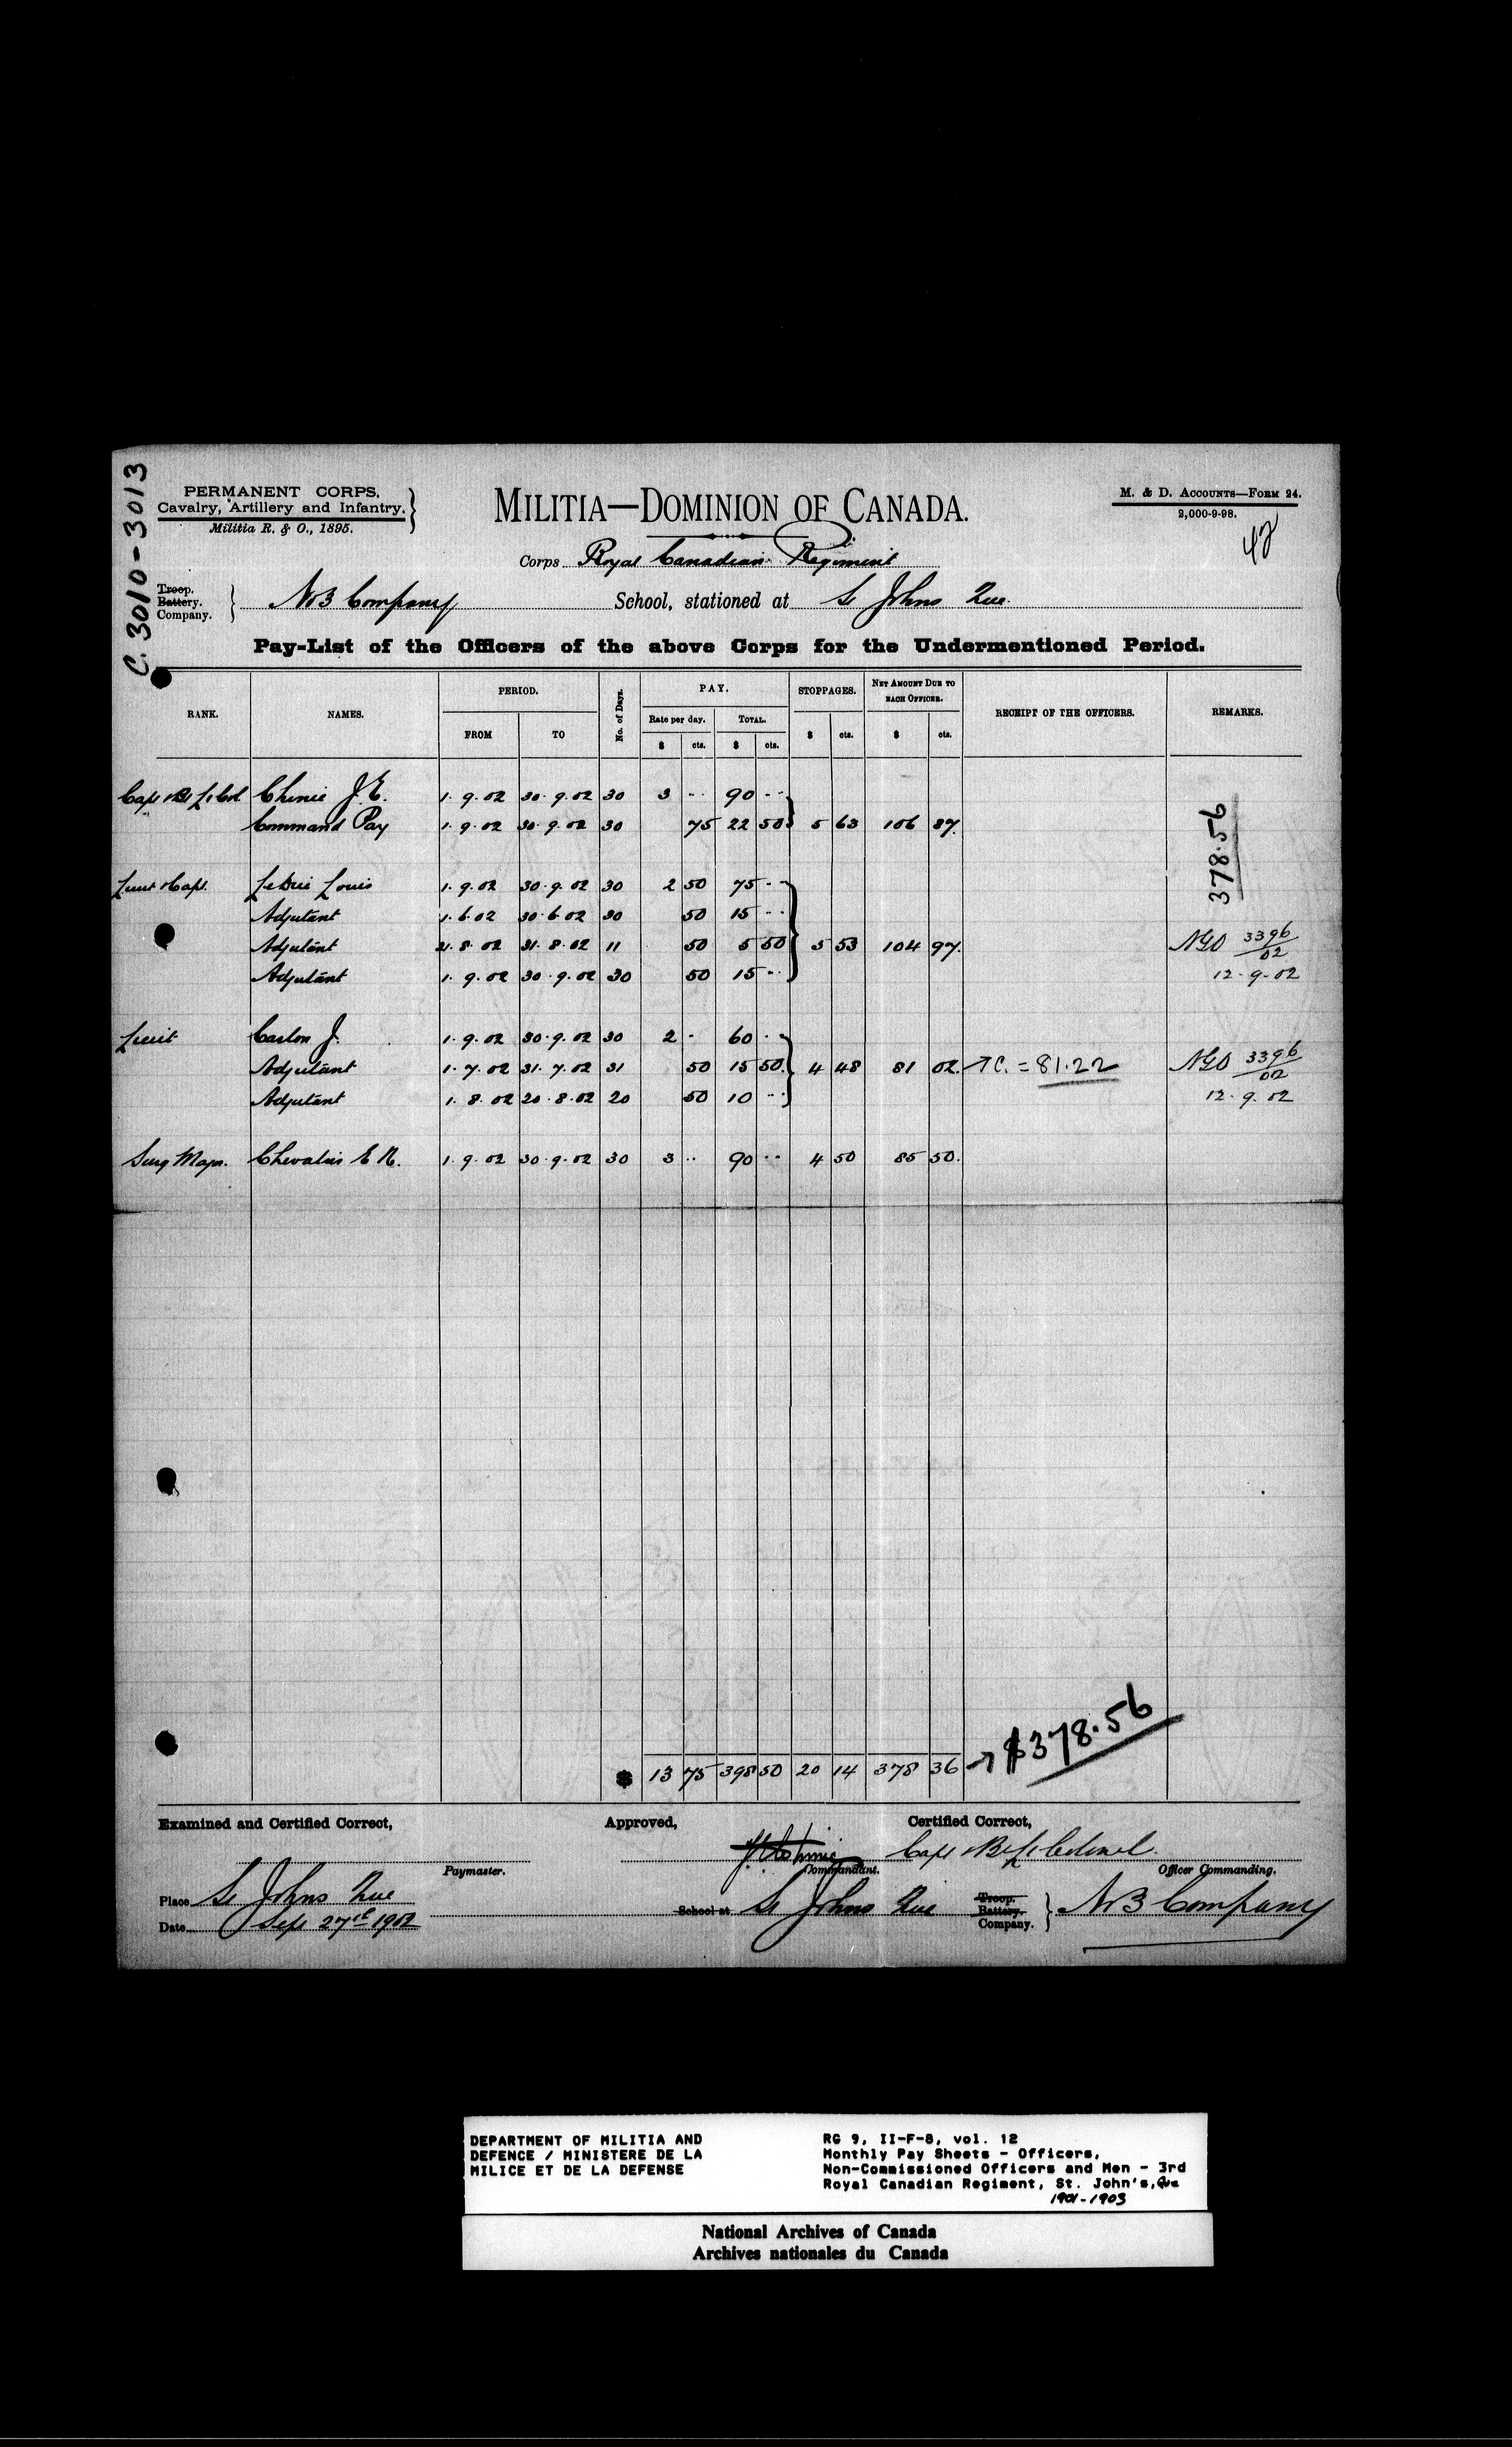 C. 3010-3013
PERMANENT CORPS,
Cavalry, Artillery and Infantry.
Militia R. & O., 1895.
MILITIA—DOMINION OF CANADA.
M. & D. ACCOUNTS—FORM 24.
2,000-9-98.
42
Corps Royal Canadian Regiment
Troop.
Battery.
Company.
No 3 Company School, stationed at St Johns Que.
Pay-List of the Officers of the above Corps for the Undermentioned Period.
RANK. NAMES. PERIOD. No. of Days. PAY. STOPPAGES. NET AMOUNT DUE TO EACH OFFICER. RECEIPT OF THE OFFICERS. REMARKS.
FROM TO Rate per day. TOTAL. $ cts. $ cts.
$ cts. $ cts.
Capt & Bt Lt Col Chinic J. E. 1. 9. 02 30. 9. 02 30 3 .. 90 ..
Command Pay 1. 9. 02 30. 9. 02 30 75 22 50 5 63 106 87.
378.56
Lieut & Capt. Leduc Louis 1. 9. 02 30. 9. 02 30 2 50 75 ..
Adjutant 1. 6. 02 30. 6. 02 30 50 15 ..
Adjutant 21. 8. 02 31. 8. 02 11 50 5 50 5 53 104 97. 3396/02
Adjutant 1. 9. 02 30. 9. 02 30 50 15 .. 12. 9. 02
Lieut Carlon J. 1. 9. 02 30. 9. 02 30 2 . 60 ..
Adjutant 1. 7. 02 31. 7. 02 31 50 15 50. 4 48 81 02. → C. = 81.22 3396/02
Adjutant 1. 8. 02 20. 8. 02 20 50 10 .. 12. 9. 02
Surg Major. Chevalier E. N. 1. 9. 02 30. 9. 02 30 3 .. 90 .. 4 50 85 50.
$ 13 75 398 50 20 14 378 36 → $378.56
Examined and Certified Correct, Approved, Certified Correct,
J E Chinic Capt & Bt Lt Colonel.
Paymaster. Commandant. Officer Commanding.
Place St Johns Que School at St Johns Que
Troop.
Battery.
Company.
No 3 Company
Date Sept 27th 1902
DEPARTMENT OF MILITIA AND
DEFENCE / MINISTERE DE LA
MILICE ET DE LA DEFENSE
RG 9, II-F-8, vol. 12
Monthly Pay Sheets - Officers,
Non-Commissioned Officers and Men - 3rd
Royal Canadian Regiment, St. John's, Que
1901-1903
National Archives of Canada
Archives nationales du Canada